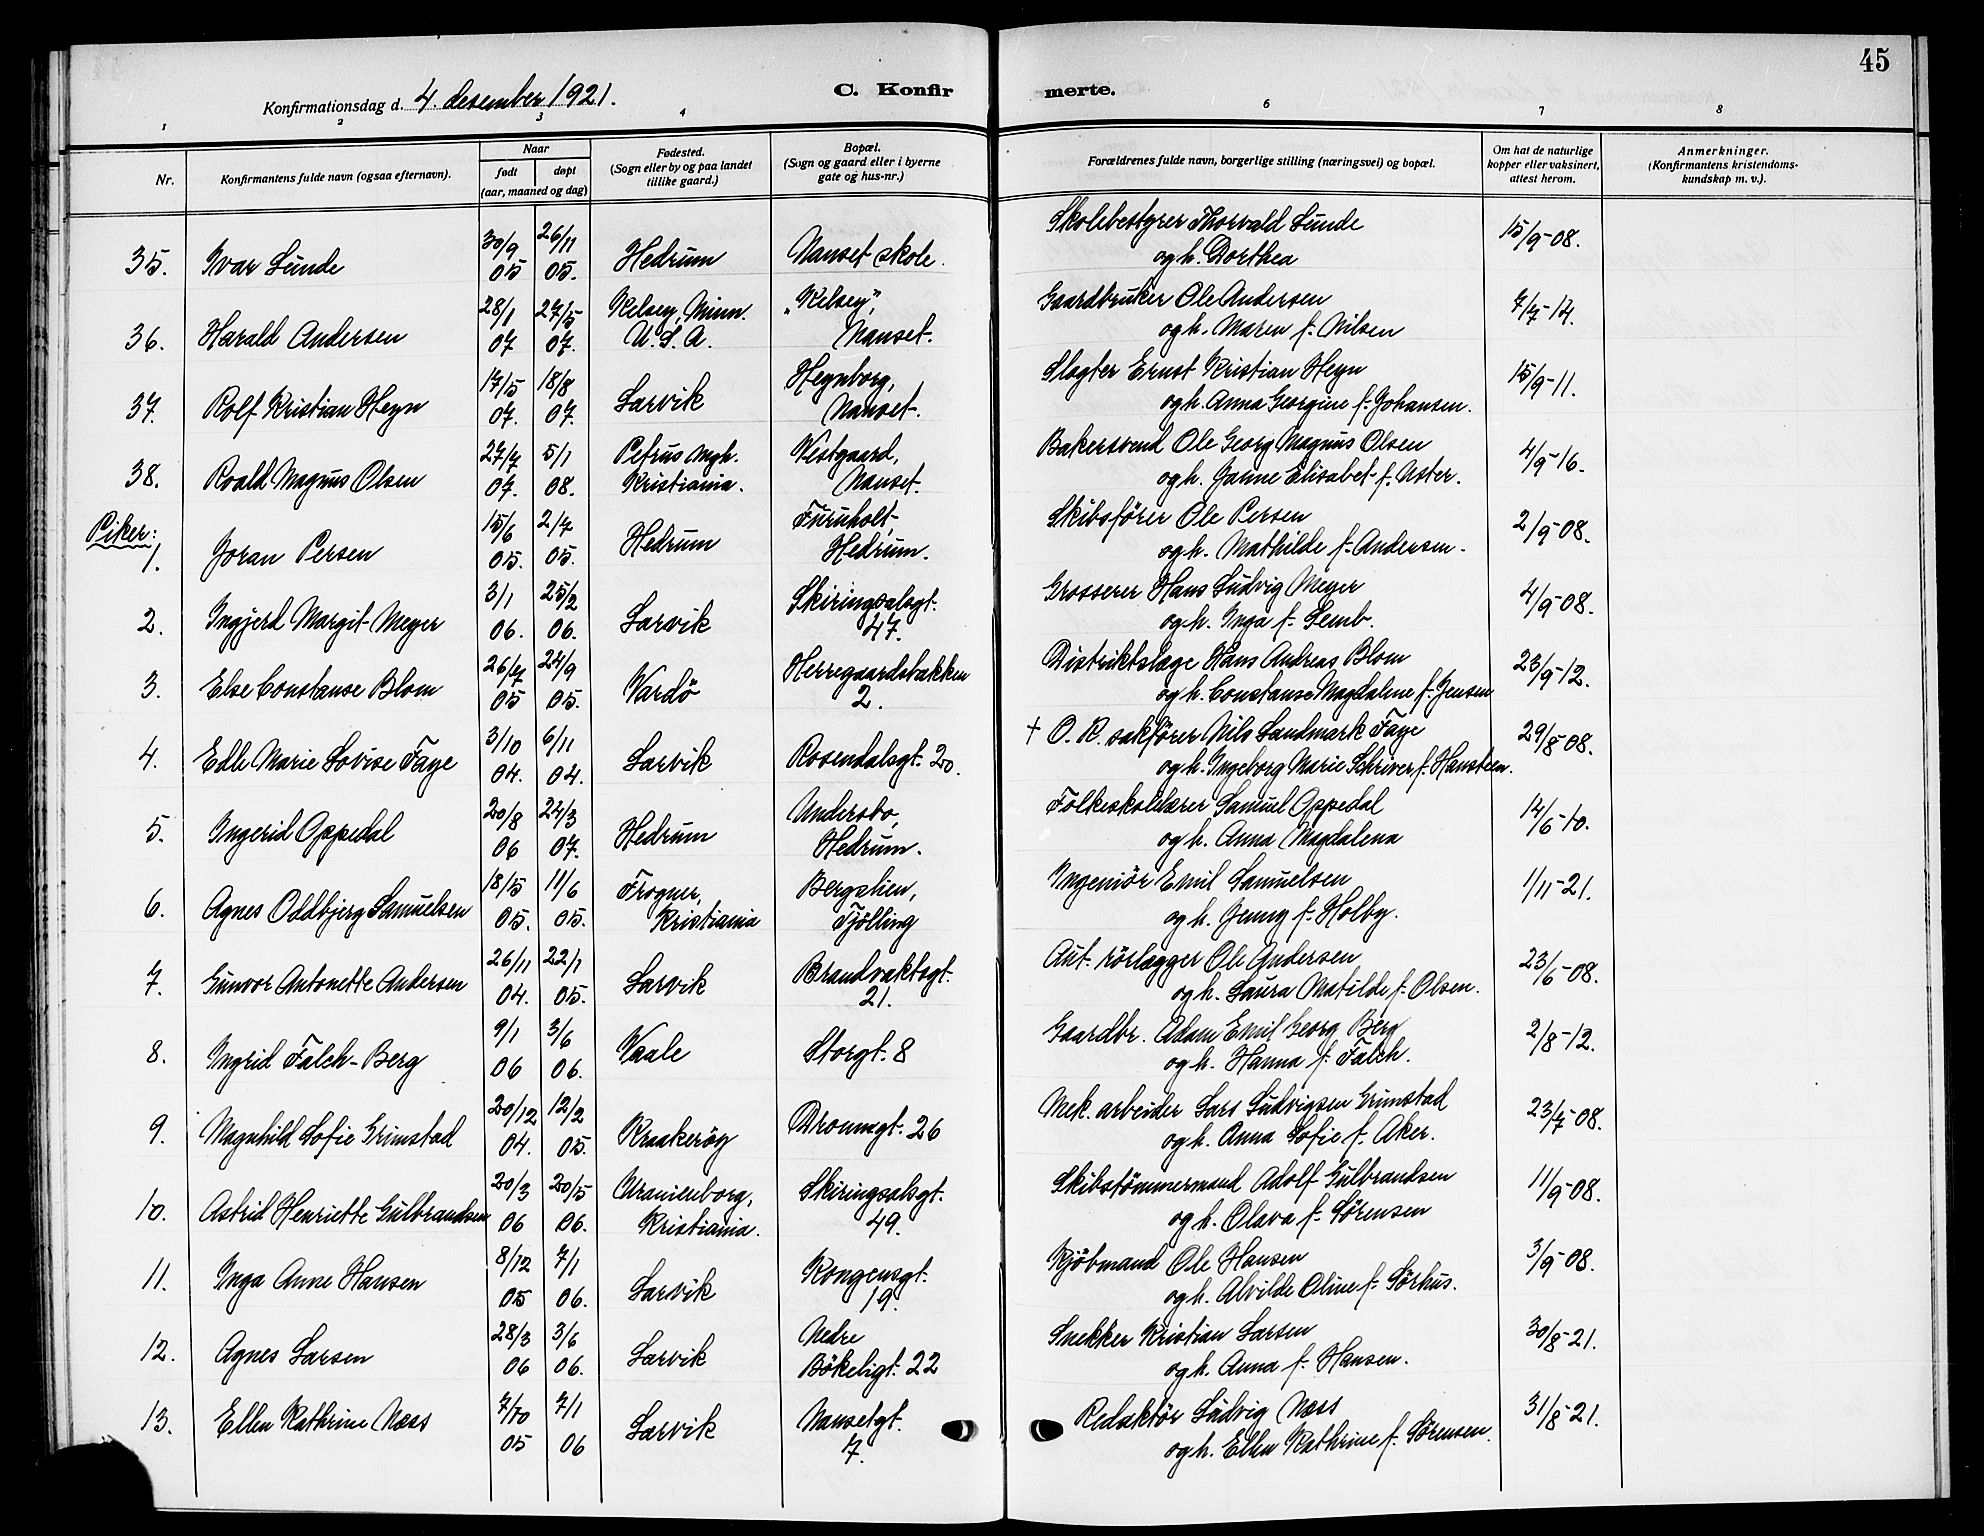 45
Konfirmationsdag d. 4. desember 1921.
C. Konfirmerte.
1 2 3 4 6 7 8
Nr.
Konfirmantens fulde navn (ogsaa efternavn).
Naar
født døpt
(aar, maaned og dag)
Fødested.
(Sogn eller by og paa landet
tillike gaard.)
Bopæl.
(Sogn og gaard eller i byerne
gate og hus-nr.)
Forældrenes fulde navn, borgerlige stilling (næringsvei) og bopæl.
Om hat de naturlige
kopper eller vaksinert,
attest herom.
Anmerkninger.
(Konfirmantens kristendoms-
kundskap m. v.).
30/9 26/11 Skolebestyrer Thorvald Lunde 15/9-08.
35. Ivar Lunde 05 05. Hedrum Nanset skole. og h. Dorthea
28/1 27/5 Kelsey, Minn. „Kelsey”, Gaardbruker Ole Andersen 7/7-14.
36. Harald Andersen 07 07. U.S.A. Nanset. og h. Maren f. Nilsen
17/5 18/8 Heynborg, Slagter Ernst Kristian Heyn 15/9-11.
37. Rolf Kristian Heyn 07. 07. Larvik Nanset. og h. Anna Georgine f. Johansen.
27/7 5/1 Petrus mgh. Vestgaard, Bakersvend Ole Georg Magnus Olsen 4/9-16.
38. Roald Magnus Olsen 07. 08. Kristiania. Nanset. og h. Janne Elisabet f. Aster.
Piker: 15/6 2/7 Furuholt, Skibsfører Ole Persen 2/9-08.
1. Joran Persen 05. 05. Hedrum Hedrum. og h. Mathilde f. Andersen.
3/1 25/2 Skiringsalsgt. Grosserer Hans Ludvig Meyer 4/9-08.
2. Ingjerd Margit Meyer 06. 06. Larvik 47. og h. Inga f. Lemb.
26/7 24/9 Herregaardsbakken Distriktslæge Hans Andreas Blom 23/9-12.
3. Else Constanse Blom 05 05. Vardö 2. og h. Constanse Magdalene f. Jensen
3/10 6/11 + O. R. sakfører Nils Landmark Faye 29/8-08.
4. Edle Marie Lovise Faye 04. 04. Larvik Rosendalsgt. 20. og h. Ingeborg Marie Schriver f. Hansteen.
20/8 24/3 Andersbo, Folkeskolelærer Samuel Oppedal 14/6-10.
5. Ingerid Oppedal 06 07. Hedrum Hedrum. og h. Anna Magdalena
18/5 11/6 Frogner, Bergslien, Ingeniör Emil Samuelsen 1/11-21.
6. Agnes Oddbjørg Samuelsen 05. 05. Kristiania Tjölling og h. Jenny f. Holby.
26/11 22/1 Brandvaktsgt. Aut. rörlægger Ole Andersen 23/6-08.
7. Gunvor Antonette Andersen 04. 05. Larvik 21. og h. Laura Matilde f. Olsen.
9/1 3/6 Gaardbr. Adam Emil Georg Berg 2/8-12.
8. Ingrid Falch-Berg 06 06. Vaale Storgt. 8 og h. Hanna f. Falch.
20/12 12/2 Mek. arbeider Lars Ludvigsen Grimstad 23/7-08.
9. Magnhild Sofie Grimstad 04. 05. Kraakeröy Dronnsgt. 26 og h. Anna Sofie f. Aker.
20/3 20/5 Uranienborg, Skiringsalsgt. Skibstömmermand Adolf Gulbrandsen 11/9-08.
10. Astrid Henriette Gulbrandsen 06 06. Kristiania. 49. og h. Olava f. Sörensen
8/12 7/1 Kongensgt. Kjöbmand Ole Hansen 3/9-08.
11. Inga Anne Hansen 05 06. Larvik 19. og h. Alvilde Oline f. Sörhus.
28/3 3/6 Nedre Snekker Kristian Larsen 30/8-21.
12. Agnes Larsen 06 06. Larvik Bökeligt. 22 og h. Anna f. Hansen.
7/10 7/1 Nansetgt. Redaktör Ludvig Næss 31/8-21.
13. Ellen Kathrine Næss 05 06 Larvik 7. og h. Ellen Kathrine f. Sörensen.